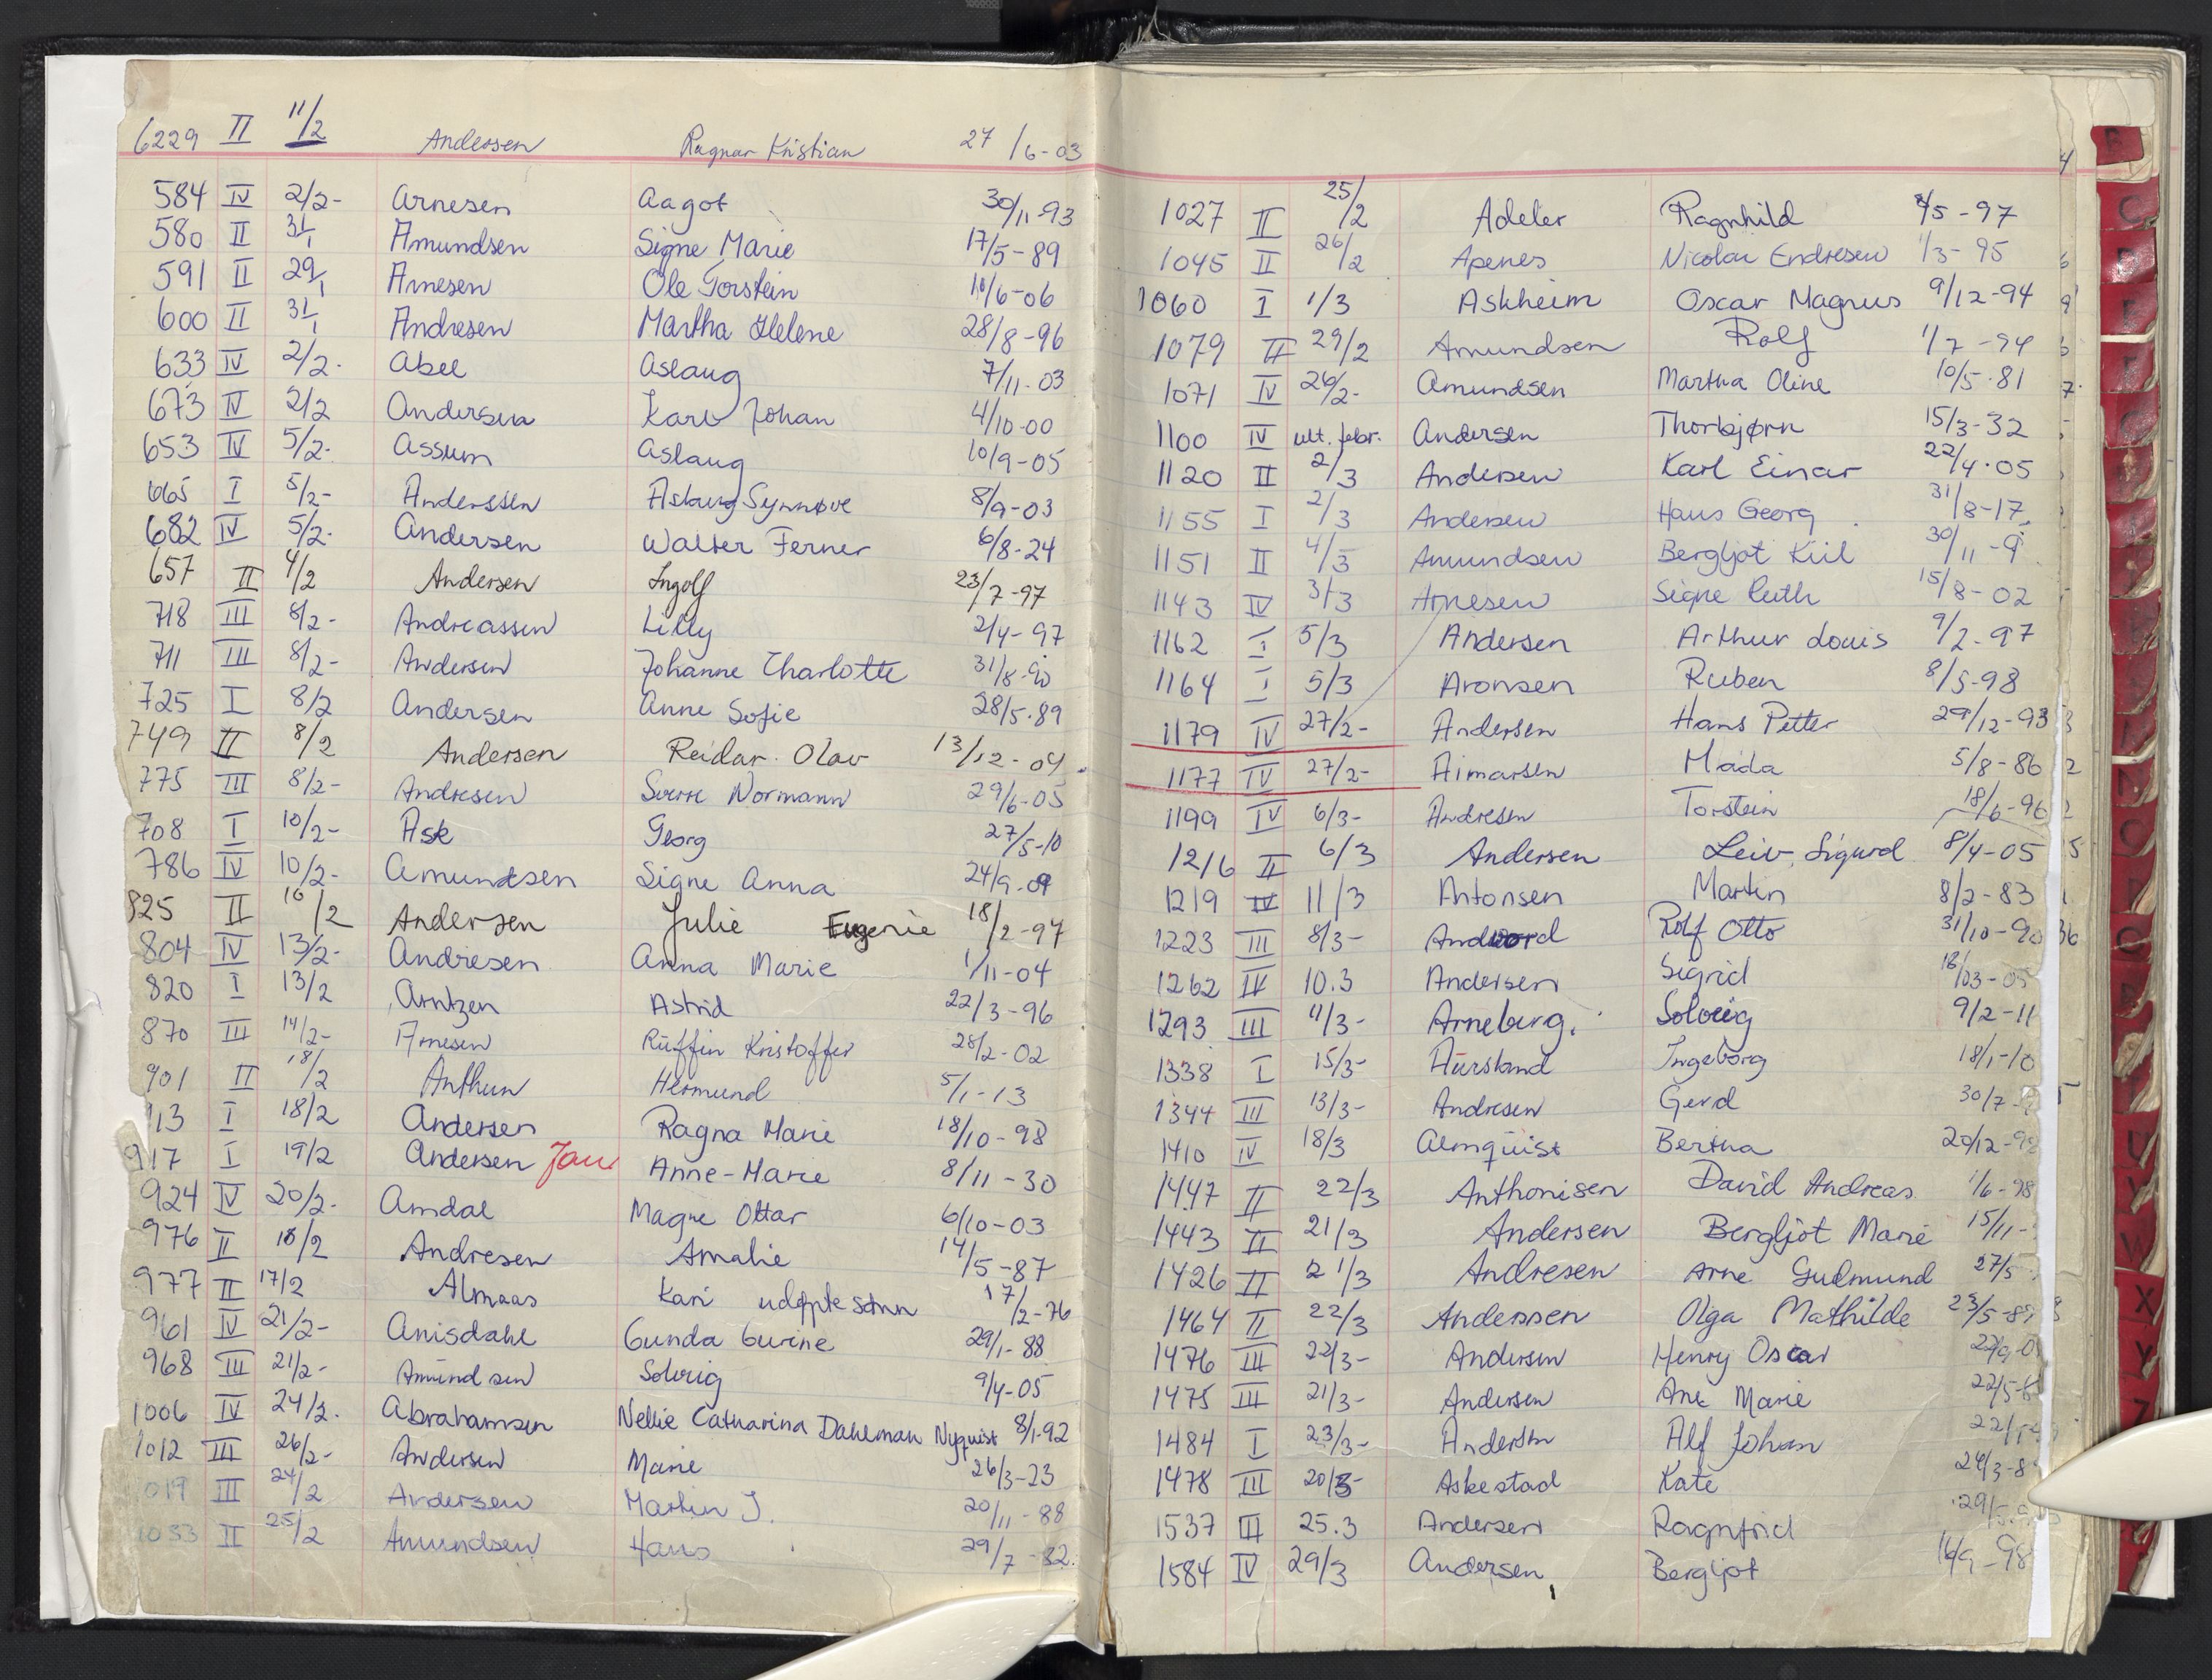 6229 II 11/2 Andersen Ragnar Kristian 27/6-03
584 IV 2/2- Arnesen Aagot 30/11-93
580 II 31/1 Amundsen Signe Marie 17/5-89
591 II 29/1 Arnesen Ole Torstein 10/6-06
600 II 31/1 Andresen Martha Helene 28/8-96
633 IV 2/2. Abel Aslaug 7/11-03
673 IV 2/2 Andersen Karl Johan 4/10-00
653 IV 5/2. Assum Aslaug 10/9-05
665 I 5/2- Anderssen Aslaug Synnøve 8/9-03
682 IV 5/2. Andersen Walter Ferner 6/8-24
657 II 4/2 Andersen Ingolf 23/7-97
718 III 8/2- Andreassen Lilly 2/4-97
711 III 8/2- Andersen Johanne Charlotte 31/8-90
725 I 8/2 Andersen Anne Sofie 28/5-89
749 II 8/2 Andersen Reidar Olav 13/12-04
775 III 8/2- Andresen Sverre Normann 29/6-05
708 I 10/2- Ask Georg 27/5-10
786 IV 10/2- Amundsen Signe Anna 24/9-09
825 II 10/2 Andersen Julie Eugenie 18/2-97
804 IV 13/2- Andresen Anna Marie 1/11-04
820 I 13/2 Arntzen Astrid 22/3-96
870 III 14/2- Arnesen Ruffin Kristoffer 28/2-02
901 II 18/2 Anthun Hermund 5/1-13
913 I 18/2 Andersen Ragna Marie 18/10-98
917 I 19/2 Andersen Jau Anne-Marie 8/11-30
924 IV 20/2. Amdal Magne Ottar 6/10-03
976 II 18/2 Andresen Amalie 14/5-87
977 II 17/2 Almaas Kari udøpte sønn 17/2-76
961 IV 21/2- Anisdahl Gunda Gurine 29/1-88
968 III 21/2- Amundsen Solveig 9/4-05
1006 IV 24/2. Abrahamsen Nellie Catharina Dahlman Nyquist 8/1-92
1012 III 26/2- Andersen Marie 26/3-23
1019 III 24/2 Andersen Martin J. 20/11-88
1033 II 25/2 Amundsen Hans 29/7-82.
1027 II 25/2 Adeler Ragnhild /5-97
1045 II 26/2 Apenes Nicolai Endresen 1/3-95
1060 I 1/3 Askheim Oscar Magnus 9/12-94
1079 II 29/2 Amundsen Rolf 1/7-94
1071 IV 26/2- Amundsen Martha Oline 10/5-81
1100 IV ult. febr. Andersen Thorbjørn 15/3-32
1120 II 2/3 Andersen Karl Einar 22/4-05
1155 I 2/3 Andersen Hans Georg 31/8-17
1151 II 4/3 Amundsen Bergljot Kiil 30/11-9
1143 IV 3/3 Arnesen Signe Ruth 15/8-02
1162 I 5/3 Andersen Arthur Louis 9/2-97
1164 I 5/3 Aronsen Ruben 8/5-98
1179 IV 27/2- Andersen Hans Petter 29/12-93
1177 IV 27/2- Aimarsen Mada 5/8-86
1199 IV 6/3- Andresen Torstein 18/6-96
1216 II 6/3 Andersen Leiv Sigurd 8/4-05
1219 IV 11/3 Antonsen Martin 8/2-83
1223 III 8/3- Andvord Rolf Otto 31/10-90
1262 IV 10.3 Andersen Sigrid 18/03-05
1293 III 11/3- Arneberg. Solveig 9/2-11
1338 I 15/3- Aursland Ingeborg 18/1-10
1344 III 13/3- Andresen Gerd 30/7-
1410 IV 18/3 Almquist Bertha 20/12-98
1447 II 22/3 Anthonisen David Andreas 1/6-98
1443 II 21/3 Andersen Bergljot Marie 15/11-
1426 II 21/3 Andresen Arne Gudmund 27/5
1464 II 22/3 Anderssen Olga Mathilde 23/5-89
1476 III 22/3- Andersen Henry Oscar 22/9-0
1475 III 21/3- Andersen Ane Marie 22/5-8
1484 I 23/3- Andersen Alf Johan
1478 III 20/3- Askestad Kate 24/3-8
1537 III 25.3 Andersen Ragnfrid 29/5
1584 IV 29/3 Andersen Bergljot 16/9-98